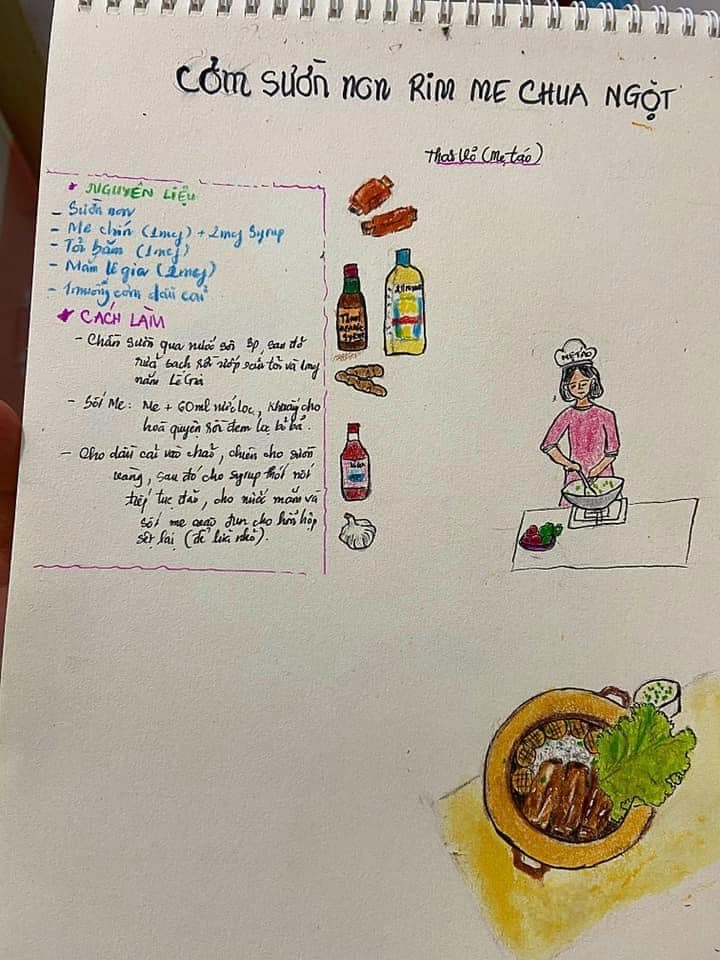 CƠM SƯỜN NON RIM ME CHUA NGỌT
Thảo Võ (Mẹ táo)
* NGUYÊN LIỆU
- Sườn non
- Me chín (1mcf) + 2mcf Syrup
- Tỏi bằm (1mcf)
- Mắm lê gia (2mcf)
- 1 muỗng cơm dầu cải
* CÁCH LÀM
- Chần sườn qua nước sôi 3p, sau đó
rửa sạch rồi ướp sườn tỏi và 1mcf
mắm Lê Gia
- Sốt Me: Me + 60ml nước lọc, khuấy cho
hoà quyện rồi đem lọc bỏ bã.
- Cho dầu cải vào chảo, chiên cho sườn
vàng, sau đó cho syrup thốt nốt
tiếp tục đảo, cho nước mắm và
sốt me vào đun cho hỗn hợp
sệt lại (để lửa nhỏ).
MẸ TÁO